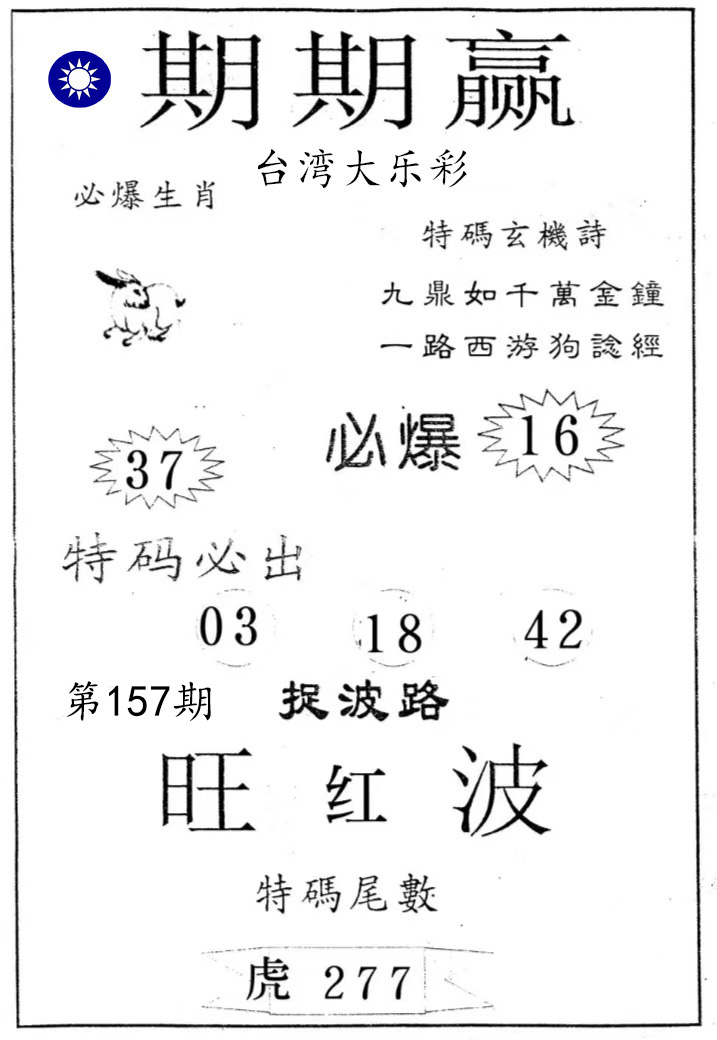 期期赢
台湾大乐彩
必爆生肖
特碼玄機詩
九鼎如千萬金鐘
一路西游狗諗經
必爆 16
37
特码必出
03 18 42
第157期 捉波路
旺红波
特碼尾數
虎 277